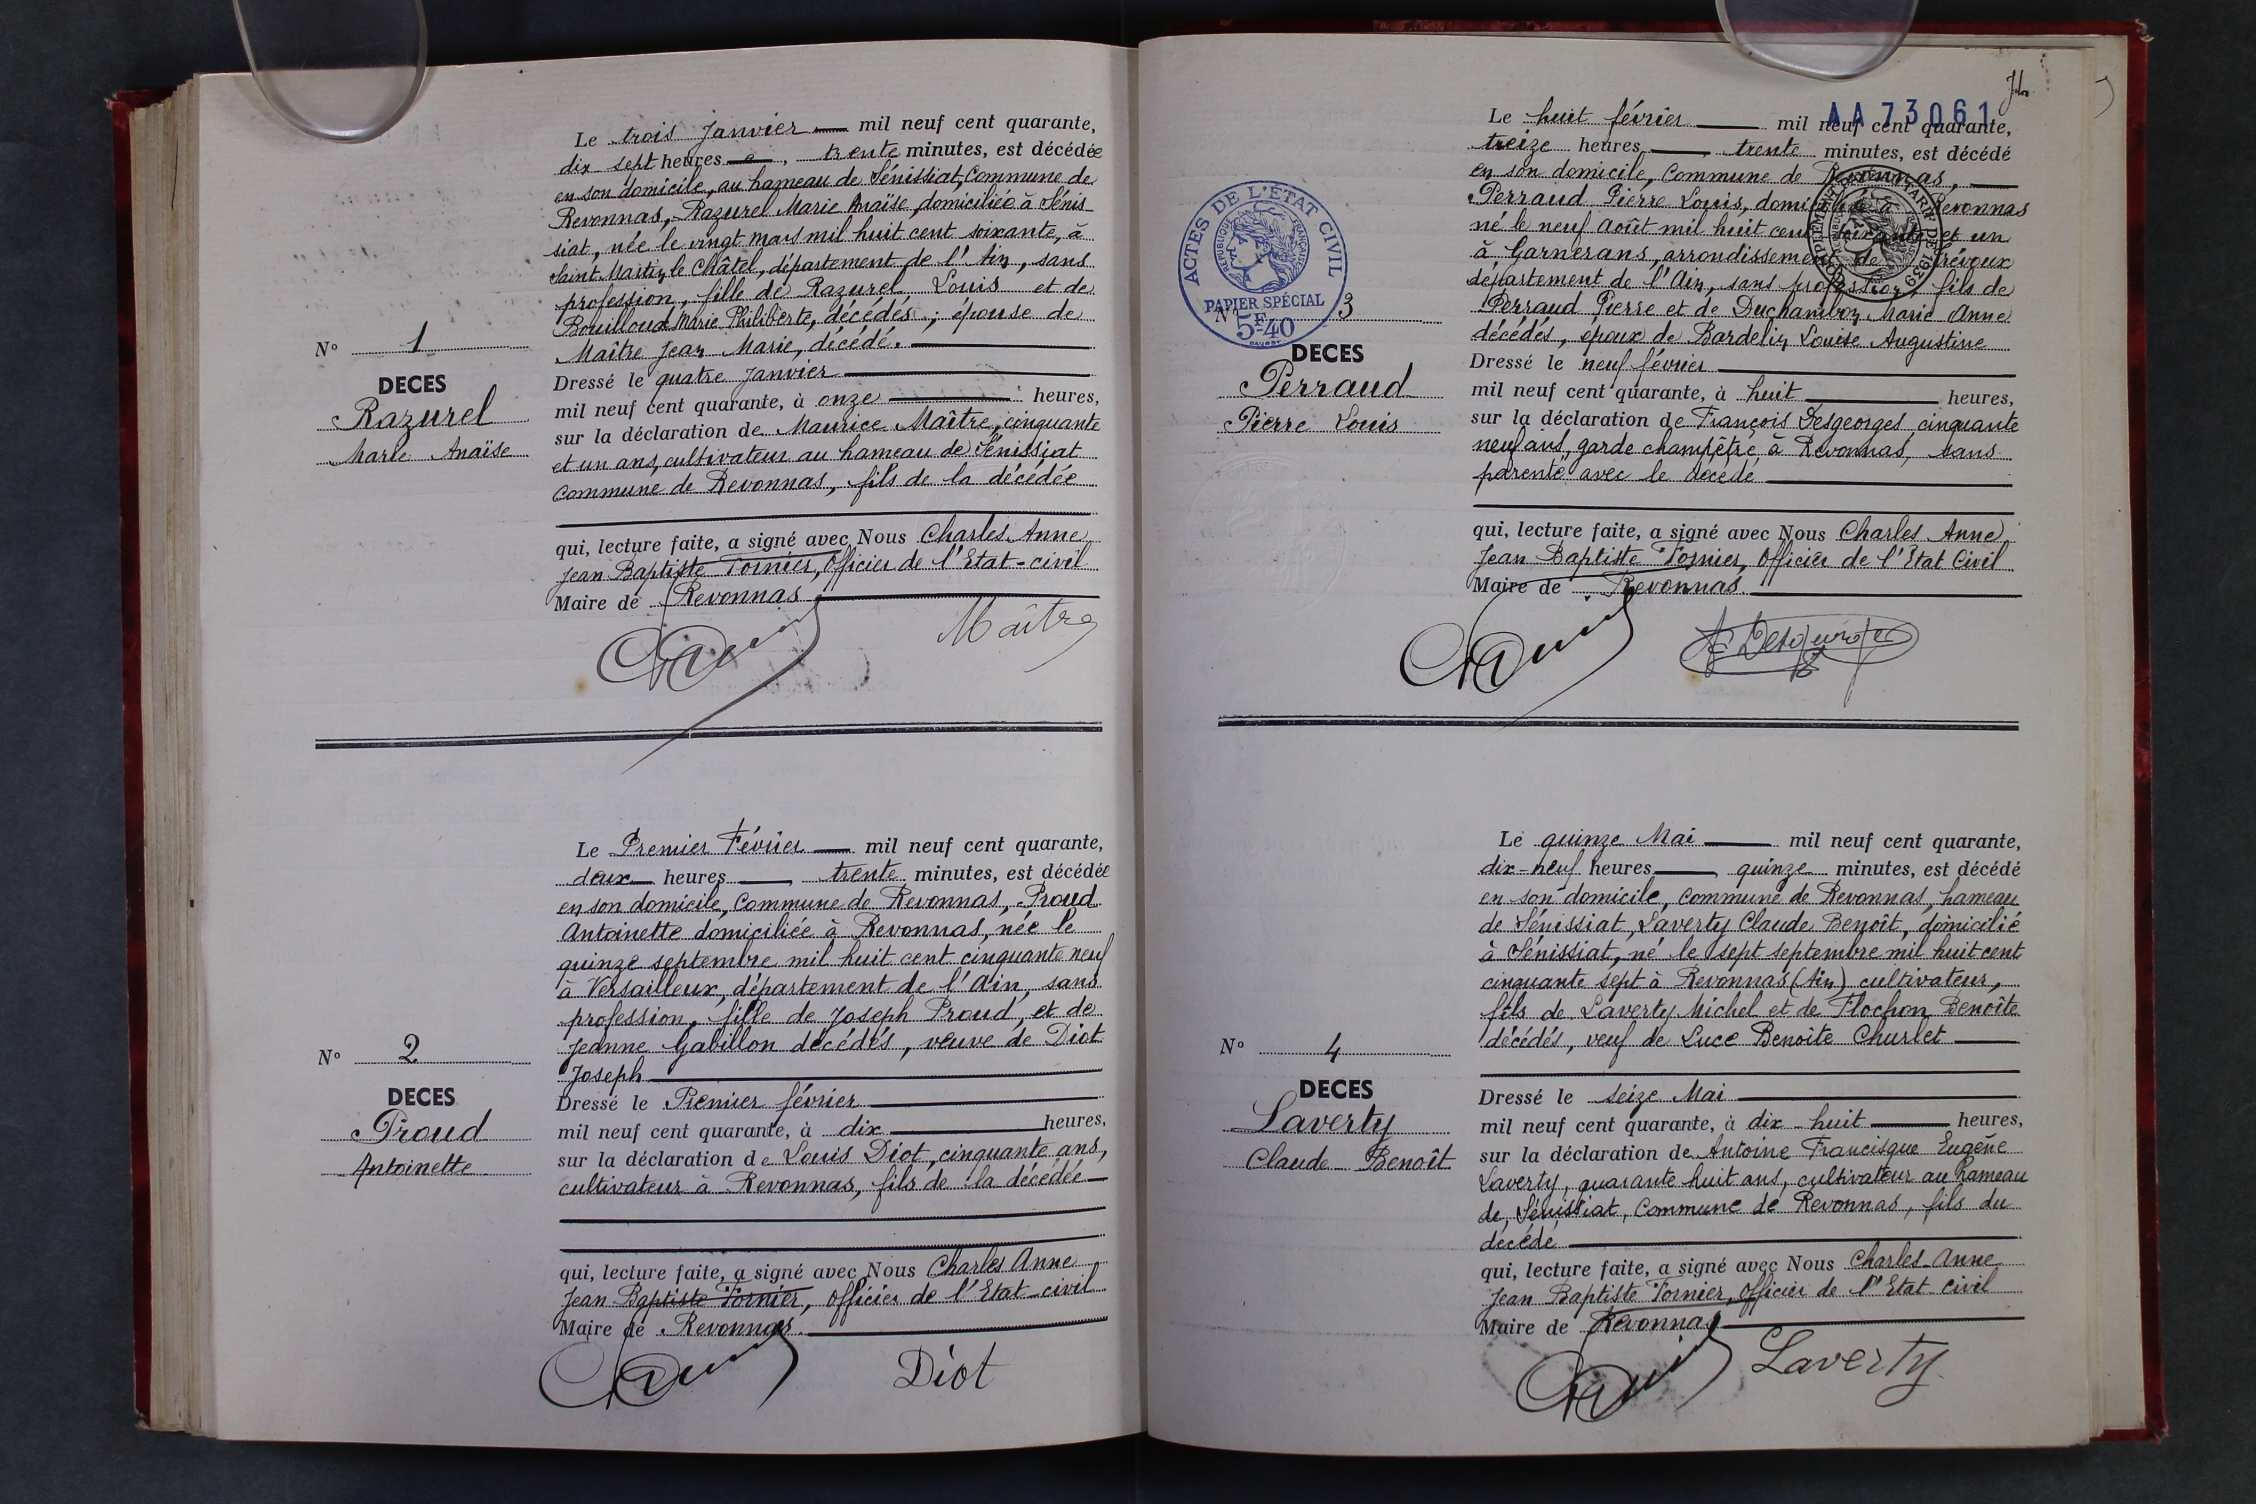 Le trois Janvier mil neuf cent quarante,
dix sept heures, trente minutes, est décédée
en son domicile, au hameau de Sénissiat, Commune de
Revonnas, Razurel Marie Anaïse, domiciliée à Sénis
siat, née le vingt mars mil huit cent soixante, à
Saint Martin le Châtel, département de l'Ain, sans
profession, fille de Razurel Louis et de
Bouilloud Marie Philiberte, décédés ; épouse de
Maître Jean Marie, décédé.
N° 1
DECES
Razurel
Marie Anaïse
Dressé le quatre Janvier
mil neuf cent quarante, à onze heures,
sur la déclaration de Maurice Maître, cinquante
et un ans, cultivateur au hameau de Sénissiat
commune de Revonnas, fils de la décédée
qui, lecture faite, a signé avec Nous Charles Anne
Jean Baptiste Tornier, Officier de l'Etat-civil
Maire de Revonnas
Maître
Le Premier Février mil neuf cent quarante,
deux heures, trente minutes, est décédée
en son domicile, Commune de Revonnas, Proud
Antoinette domiciliée à Revonnas, née le
quinze septembre mil huit cent cinquante neuf
à Versailleux, département de l'Ain, sans
profession, fille de Joseph Proud, et de
Jeanne Gabillon décédés, veuve de Diot
Joseph
N° 2
DECES
Proud
Antoinette
Dressé le Premier février
mil neuf cent quarante, à dix heures,
sur la déclaration de Louis Diot, cinquante ans,
cultivateur à Revonnas, fils de la décédée
qui, lecture faite, a signé avec Nous Charles Anne
Jean Baptiste Tornier, officier de l'Etat-civil
Maire de Revonnas.
Diot
AA73061
Le huit février mil neuf cent quarante,
treize heures, trente minutes, est décédé
en son domicile, Commune de Revonnas,
Perraud Pierre Louis, domicilié à Revonnas
né le neuf Août mil huit cent soixante et un
à Garnerans, arrondissement de Trévoux
département de l'Ain, sans profession, fils de
Perraud Pierre et de Duchambon Marie Anne
décédés, époux de Bardelin Louise Augustine
ACTES DE L'ETAT CIVIL
REPUBLIQUE FRANÇAISE
PAPIER SPÉCIAL
5F40
N° 3
DECES
Perraud
Pierre Louis
TARIF DE 1939
Dressé le neuf février
mil neuf cent quarante, à huit heures,
sur la déclaration de François Desgeorges cinquante
neuf ans, garde champêtre, à Revonnas, sans
parenté avec le décédé
qui, lecture faite, a signé avec Nous Charles Anne
Jean Baptiste Tornier, Officier de l'Etat Civil
Maire de Revonnas.
Desgeorges
Le quinze Mai mil neuf cent quarante,
dix-neuf heures, quinze minutes, est décédé
en son domicile, commune de Revonnas, hameau
de Sénissiat, Laverty Claude Benoît, domicilié
à Sénissiat, né le sept septembre mil huit cent
cinquante sept à Revonnas (Ain) cultivateur,
fils de Laverty Michel et de Flochon Benoîte
décédés, veuf de Luce Benoîte Churlet
N° 4
DECES
Laverty
Claude Benoît
Dressé le seize Mai
mil neuf cent quarante, à dix-huit heures,
sur la déclaration de Antoine Francisque Eugène
Laverty, quarante huit ans, cultivateur au hameau
de Sénissiat, Commune de Revonnas, fils du
décédé
qui, lecture faite, a signé avec Nous Charles-Anne
Jean Baptiste Tornier, Officier de l'Etat civil
Maire de Revonnas
Laverty